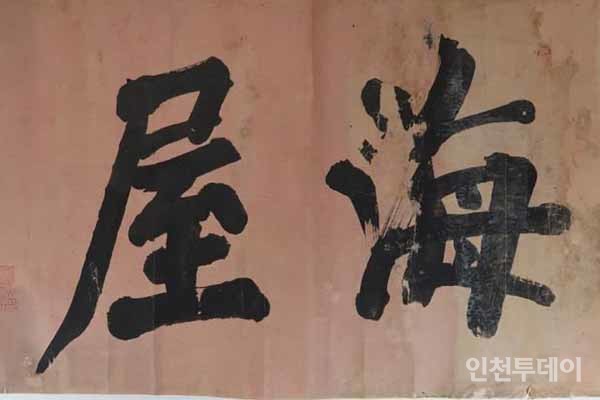 海屋
인천투데이